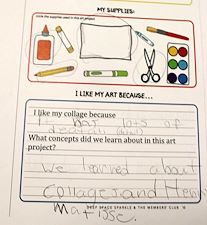 MY SUPPLIES:
Circle the supplies used in this art project
I LIKE MY ART BECAUSE...
I like my collage because
It has lots of
What concepts did we learn about in this art
project?
We learned about
collages and Henri
Matisse.
DEEP SPACE SPARKLE & THE MEMBERS' CLUB